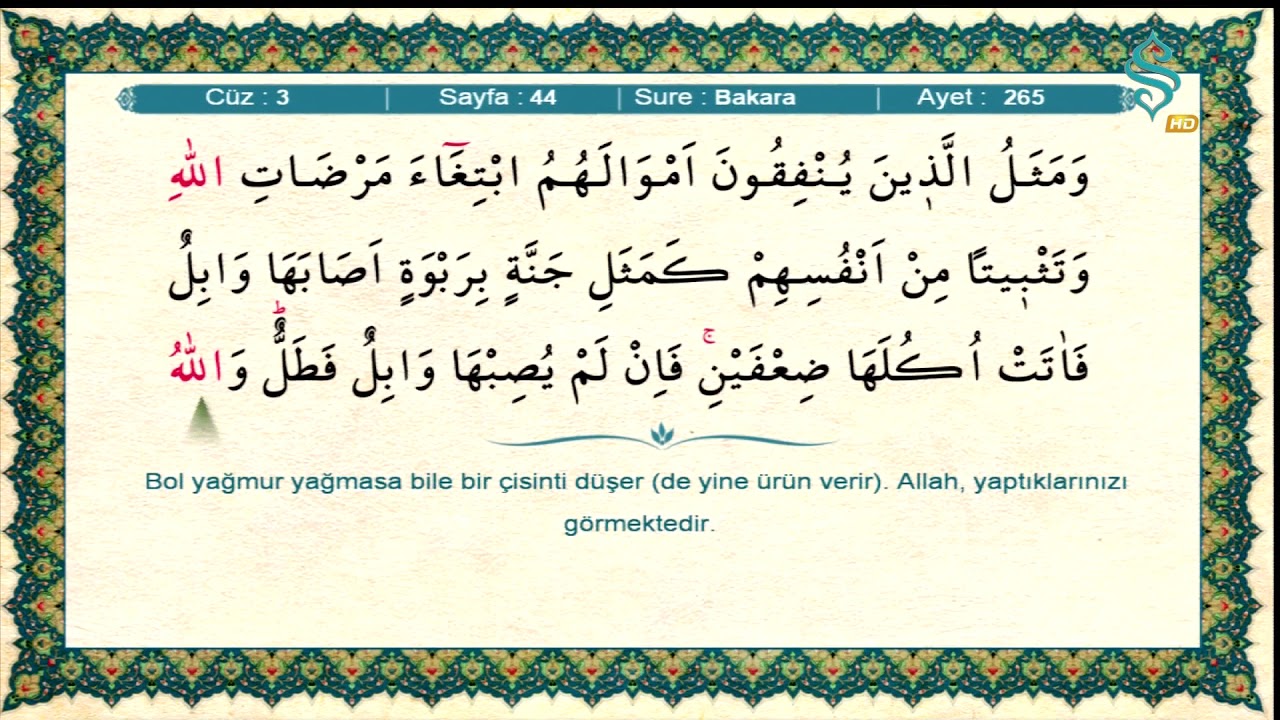 Cüz : 3 | Sayfa : 44 | Sure : Bakara | Ayet : 265
HD
وَمَثَلُ الَّذ۪ينَ يُنْفِقُونَ اَمْوَالَهُمُ ابْتِغَٓاءَ مَرْضَاتِ اللّٰهِ
وَتَثْب۪يتًا مِنْ اَنْفُسِهِمْ كَمَثَلِ جَنَّةٍ بِرَبْوَةٍ اَصَابَهَا وَابِلٌ
فَاٰتَتْ اُكُلَهَا ضِعْفَيْنِۚ فَاِنْ لَمْ يُصِبْهَا وَابِلٌ فَطَلٌّۜ وَاللّٰهُ
Bol yağmur yağmasa bile bir çisinti düşer (de yine ürün verir). Allah, yaptıklarınızı
görmektedir.